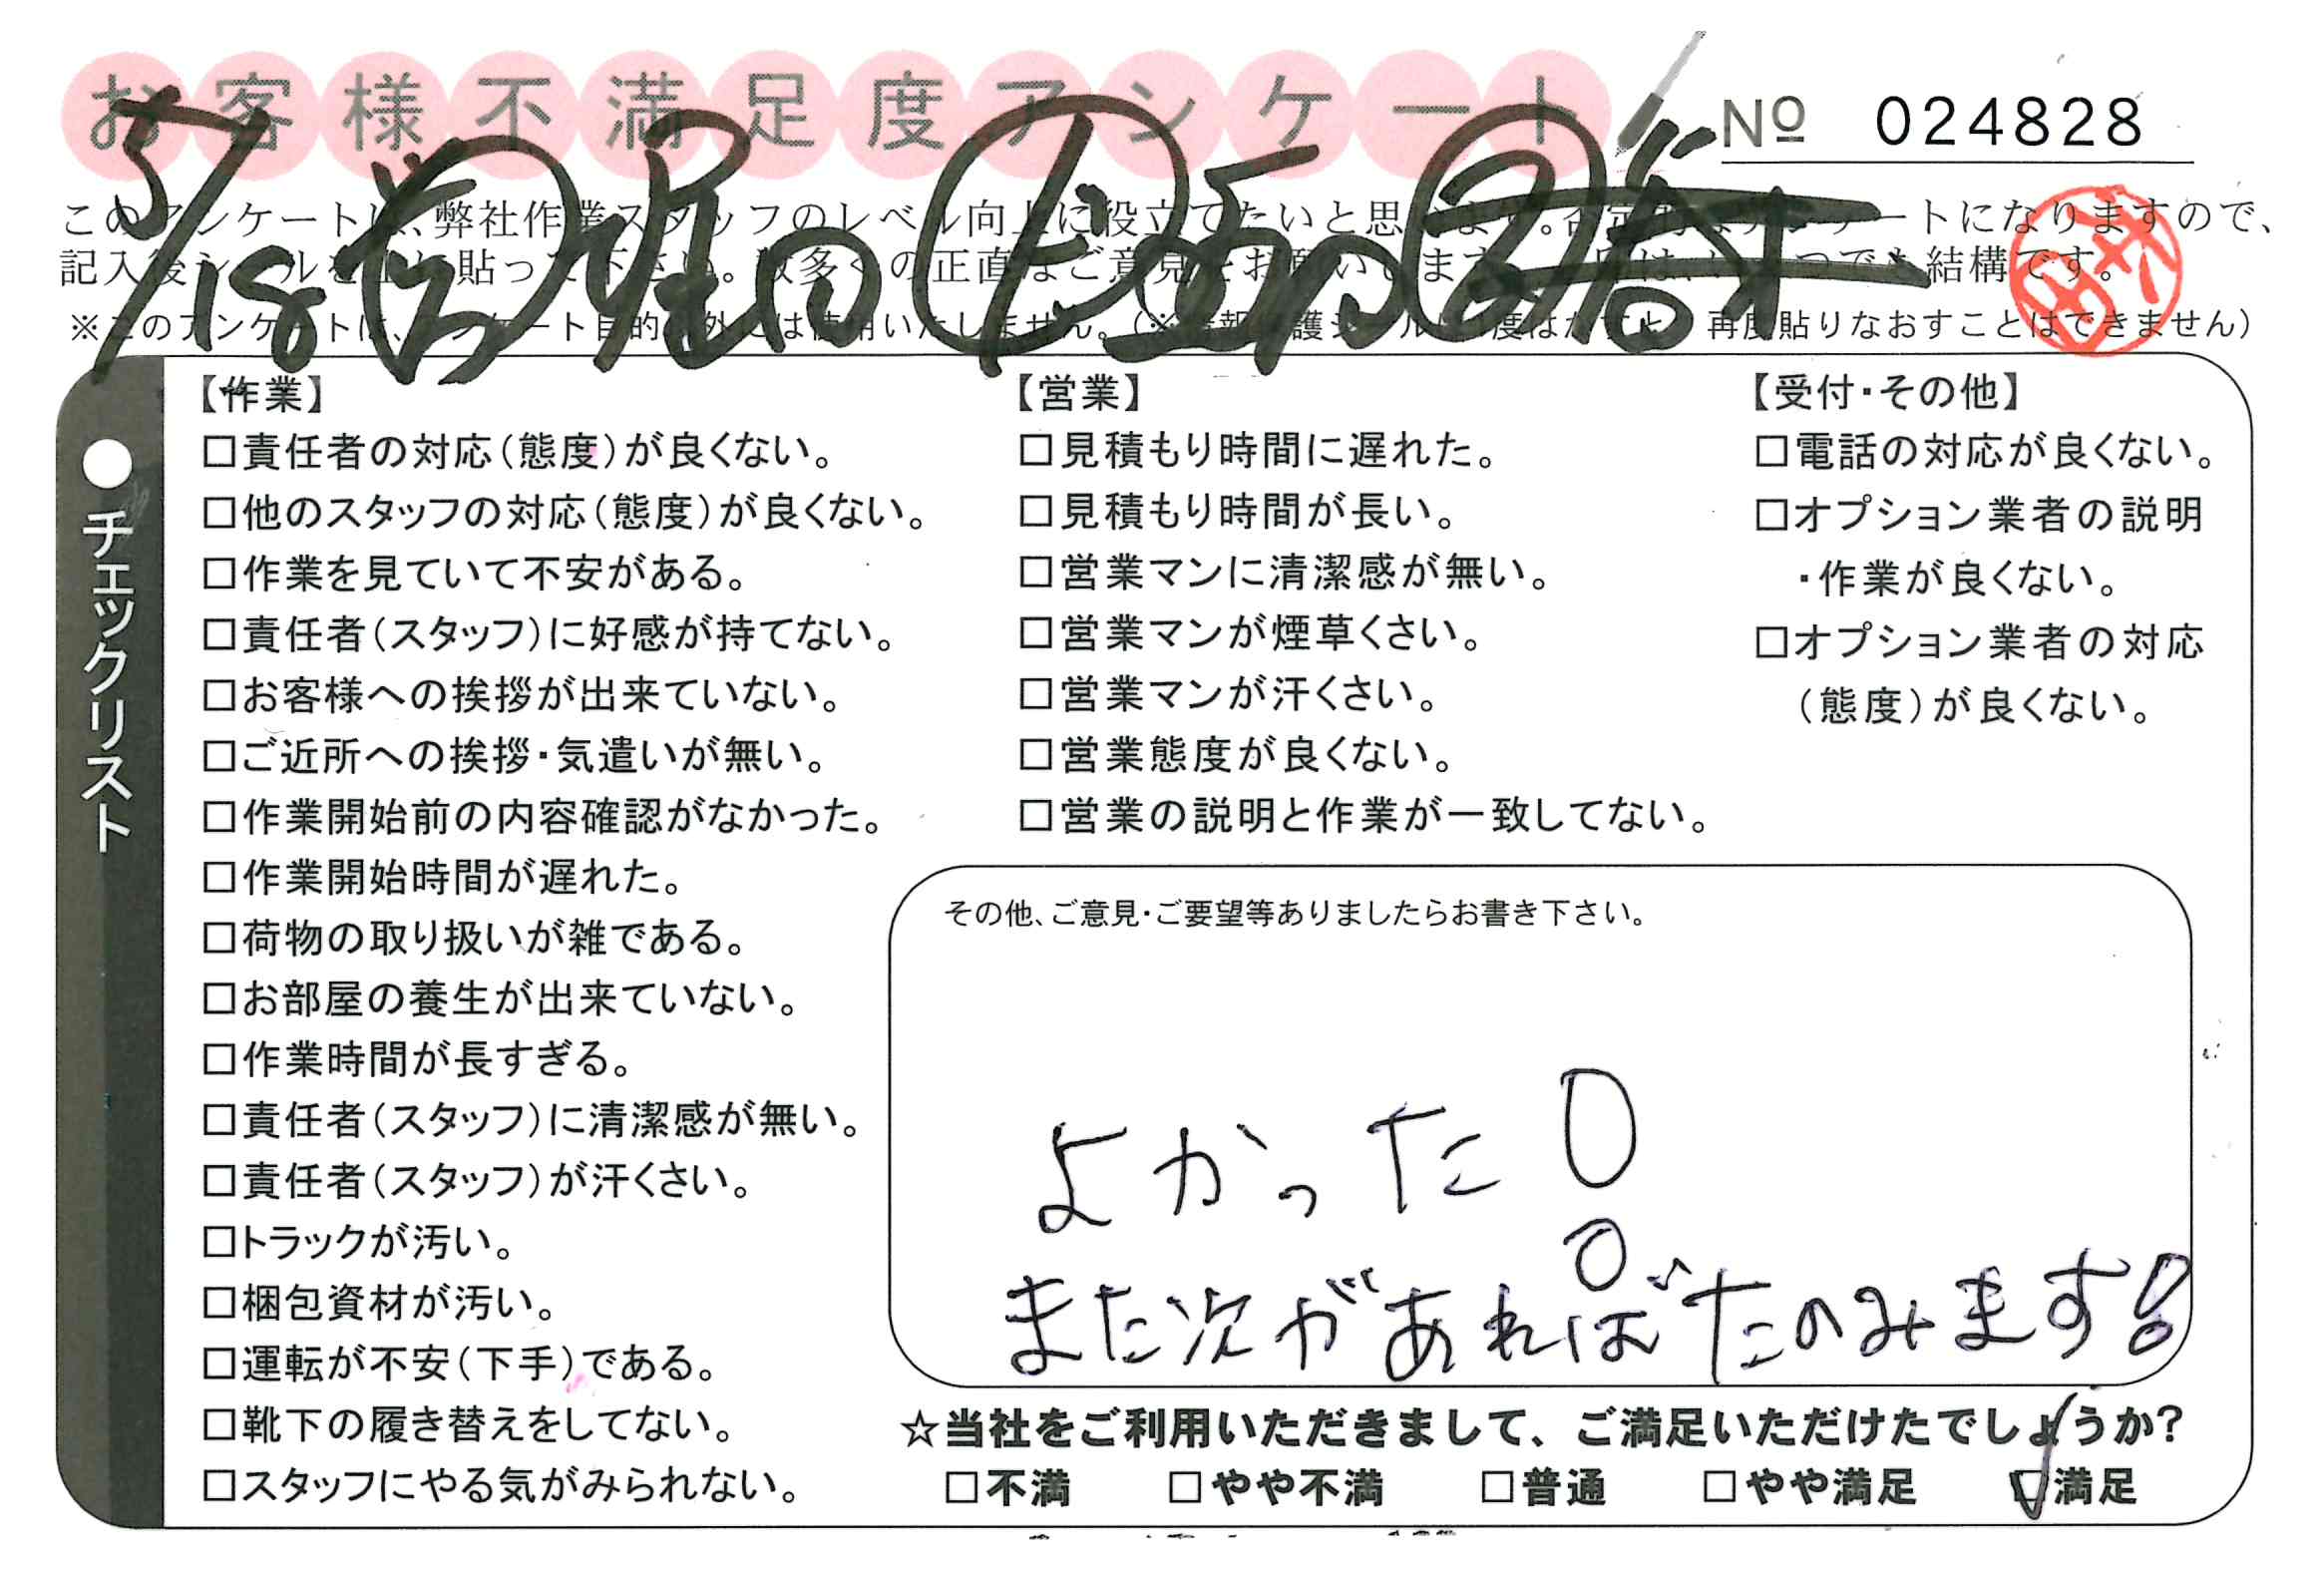 お客様不満足度アンケート
№ 024828
このアンケートは、弊社作業スタッフのレベル向上に役立てたいと思います。否定的なアンケートになりますので、
記入後シールを上に貼って下さい。数多くの正直なご意見をお願いします。
結構です。
※このアンケートは、アンケート目的以外には使用いたしません。(※情報保護シールは1度はがすと、再度貼りなおすことはできません)
5/18
●チェックリスト
【作業】
□責任者の対応(態度)が良くない。
□他のスタッフの対応(態度)が良くない。
□作業を見ていて不安がある。
□責任者(スタッフ)に好感が持てない。
□お客様への挨拶が出来ていない。
□ご近所への挨拶・気遣いが無い。
□作業開始前の内容確認がなかった。
□作業開始時間が遅れた。
□荷物の取り扱いが雑である。
□お部屋の養生が出来ていない。
□作業時間が長すぎる。
□責任者(スタッフ)に清潔感が無い。
□責任者(スタッフ)が汗くさい。
□トラックが汚い。
□梱包資材が汚い。
□運転が不安(下手)である。
□靴下の履き替えをしてない。
□スタッフにやる気がみられない。
【営業】
□見積もり時間に遅れた。
□見積もり時間が長い。
□営業マンに清潔感が無い。
□営業マンが煙草くさい。
□営業マンが汗くさい。
□営業態度が良くない。
□営業の説明と作業が一致してない。
【受付・その他】
□電話の対応が良くない。
□オプション業者の説明
・作業が良くない。
□オプション業者の対応
(態度)が良くない。
その他、ご意見・ご要望等ありましたらお書き下さい。
よかった!
また次があればたのみます!
☆当社をご利用いただきまして、ご満足いただけたでしょうか?
□不満 □やや不満 □普通 □やや満足 ☑満足